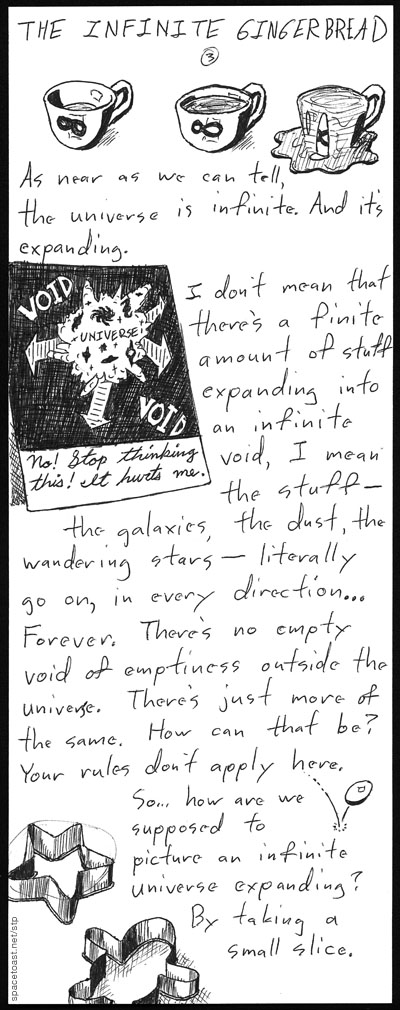 THE INFINITE GINGERBREAD
3
As near as we can tell,
the universe is infinite. And it's
expanding.
VOID
UNIVERSE
VOID
No! Stop thinking
this! It hurts me.
I don't mean that
there's a finite
amount of stuff
expanding into
an infinite
void, I mean
the stuff—
the galaxies, the dust, the
wandering stars — literally
go on, in every direction...
Forever. There's no empty
void of emptiness outside the
universe. There's just more of
the same. How can that be?
Your rules don't apply here.
So... how are we
supposed to
picture an infinite
universe expanding?
By taking a
small slice.
spacetoast.net/stp